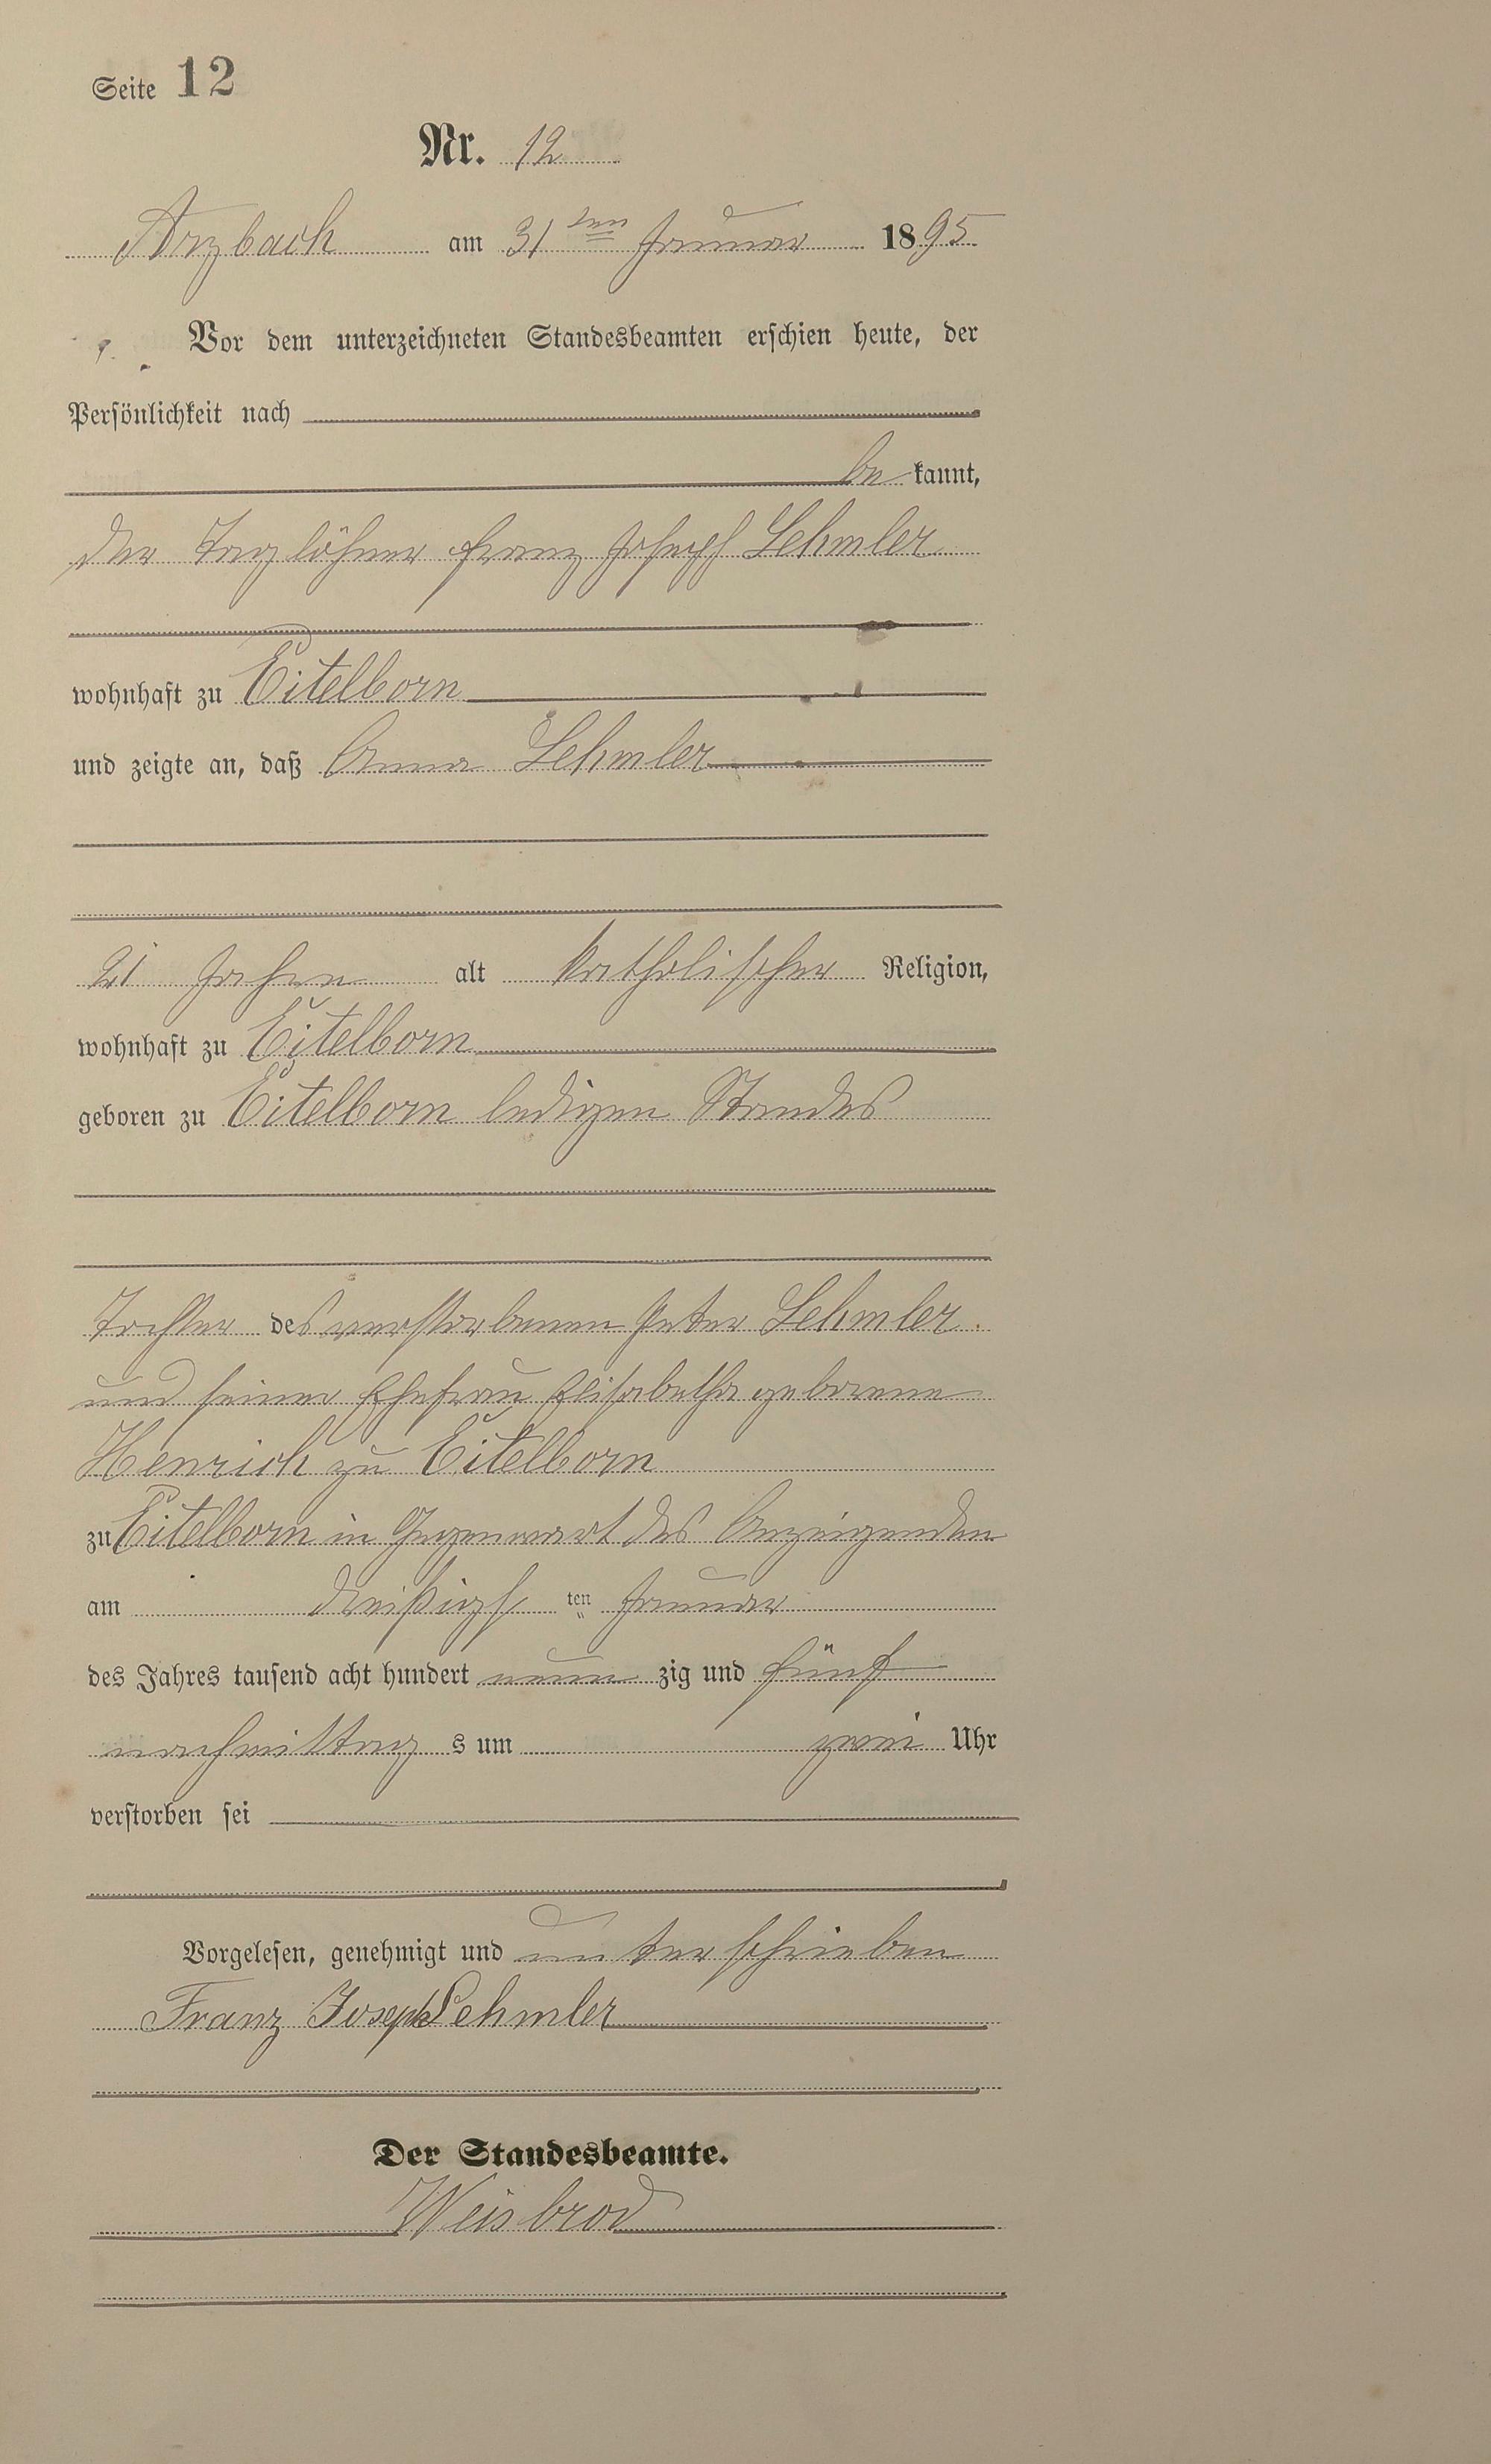 Seite 12
Nr. 12
Arzbach am 31ten Januar 1895
Vor dem unterzeichneten Standesbeamten erschien heute, der
Persönlichkeit nach
be kannt,
der Taglöhner Franz Joseph Lehmler
wohnhaft zu Eitelborn
und zeigte an, daß Anna Lehmler
21 Jahre alt katholischer Religion,
wohnhaft zu Eitelborn
geboren zu Eitelborn ledigen Standes
Tochter des verstorbenen Peter Lehmler
und seiner Ehefrau Elisabetha geborene
Henrich zu Eitelborn
zu Eitelborn in Gegenwart des Anzeigenden
am dreißigsten Januar
des Jahres tausend acht hundert neun zig und fünf
nachmittag s um zwei Uhr
verstorben sei
Vorgelesen, genehmigt und unterschrieben
Franz Joseph Lehmler
Der Standesbeamte.
Weisbrod